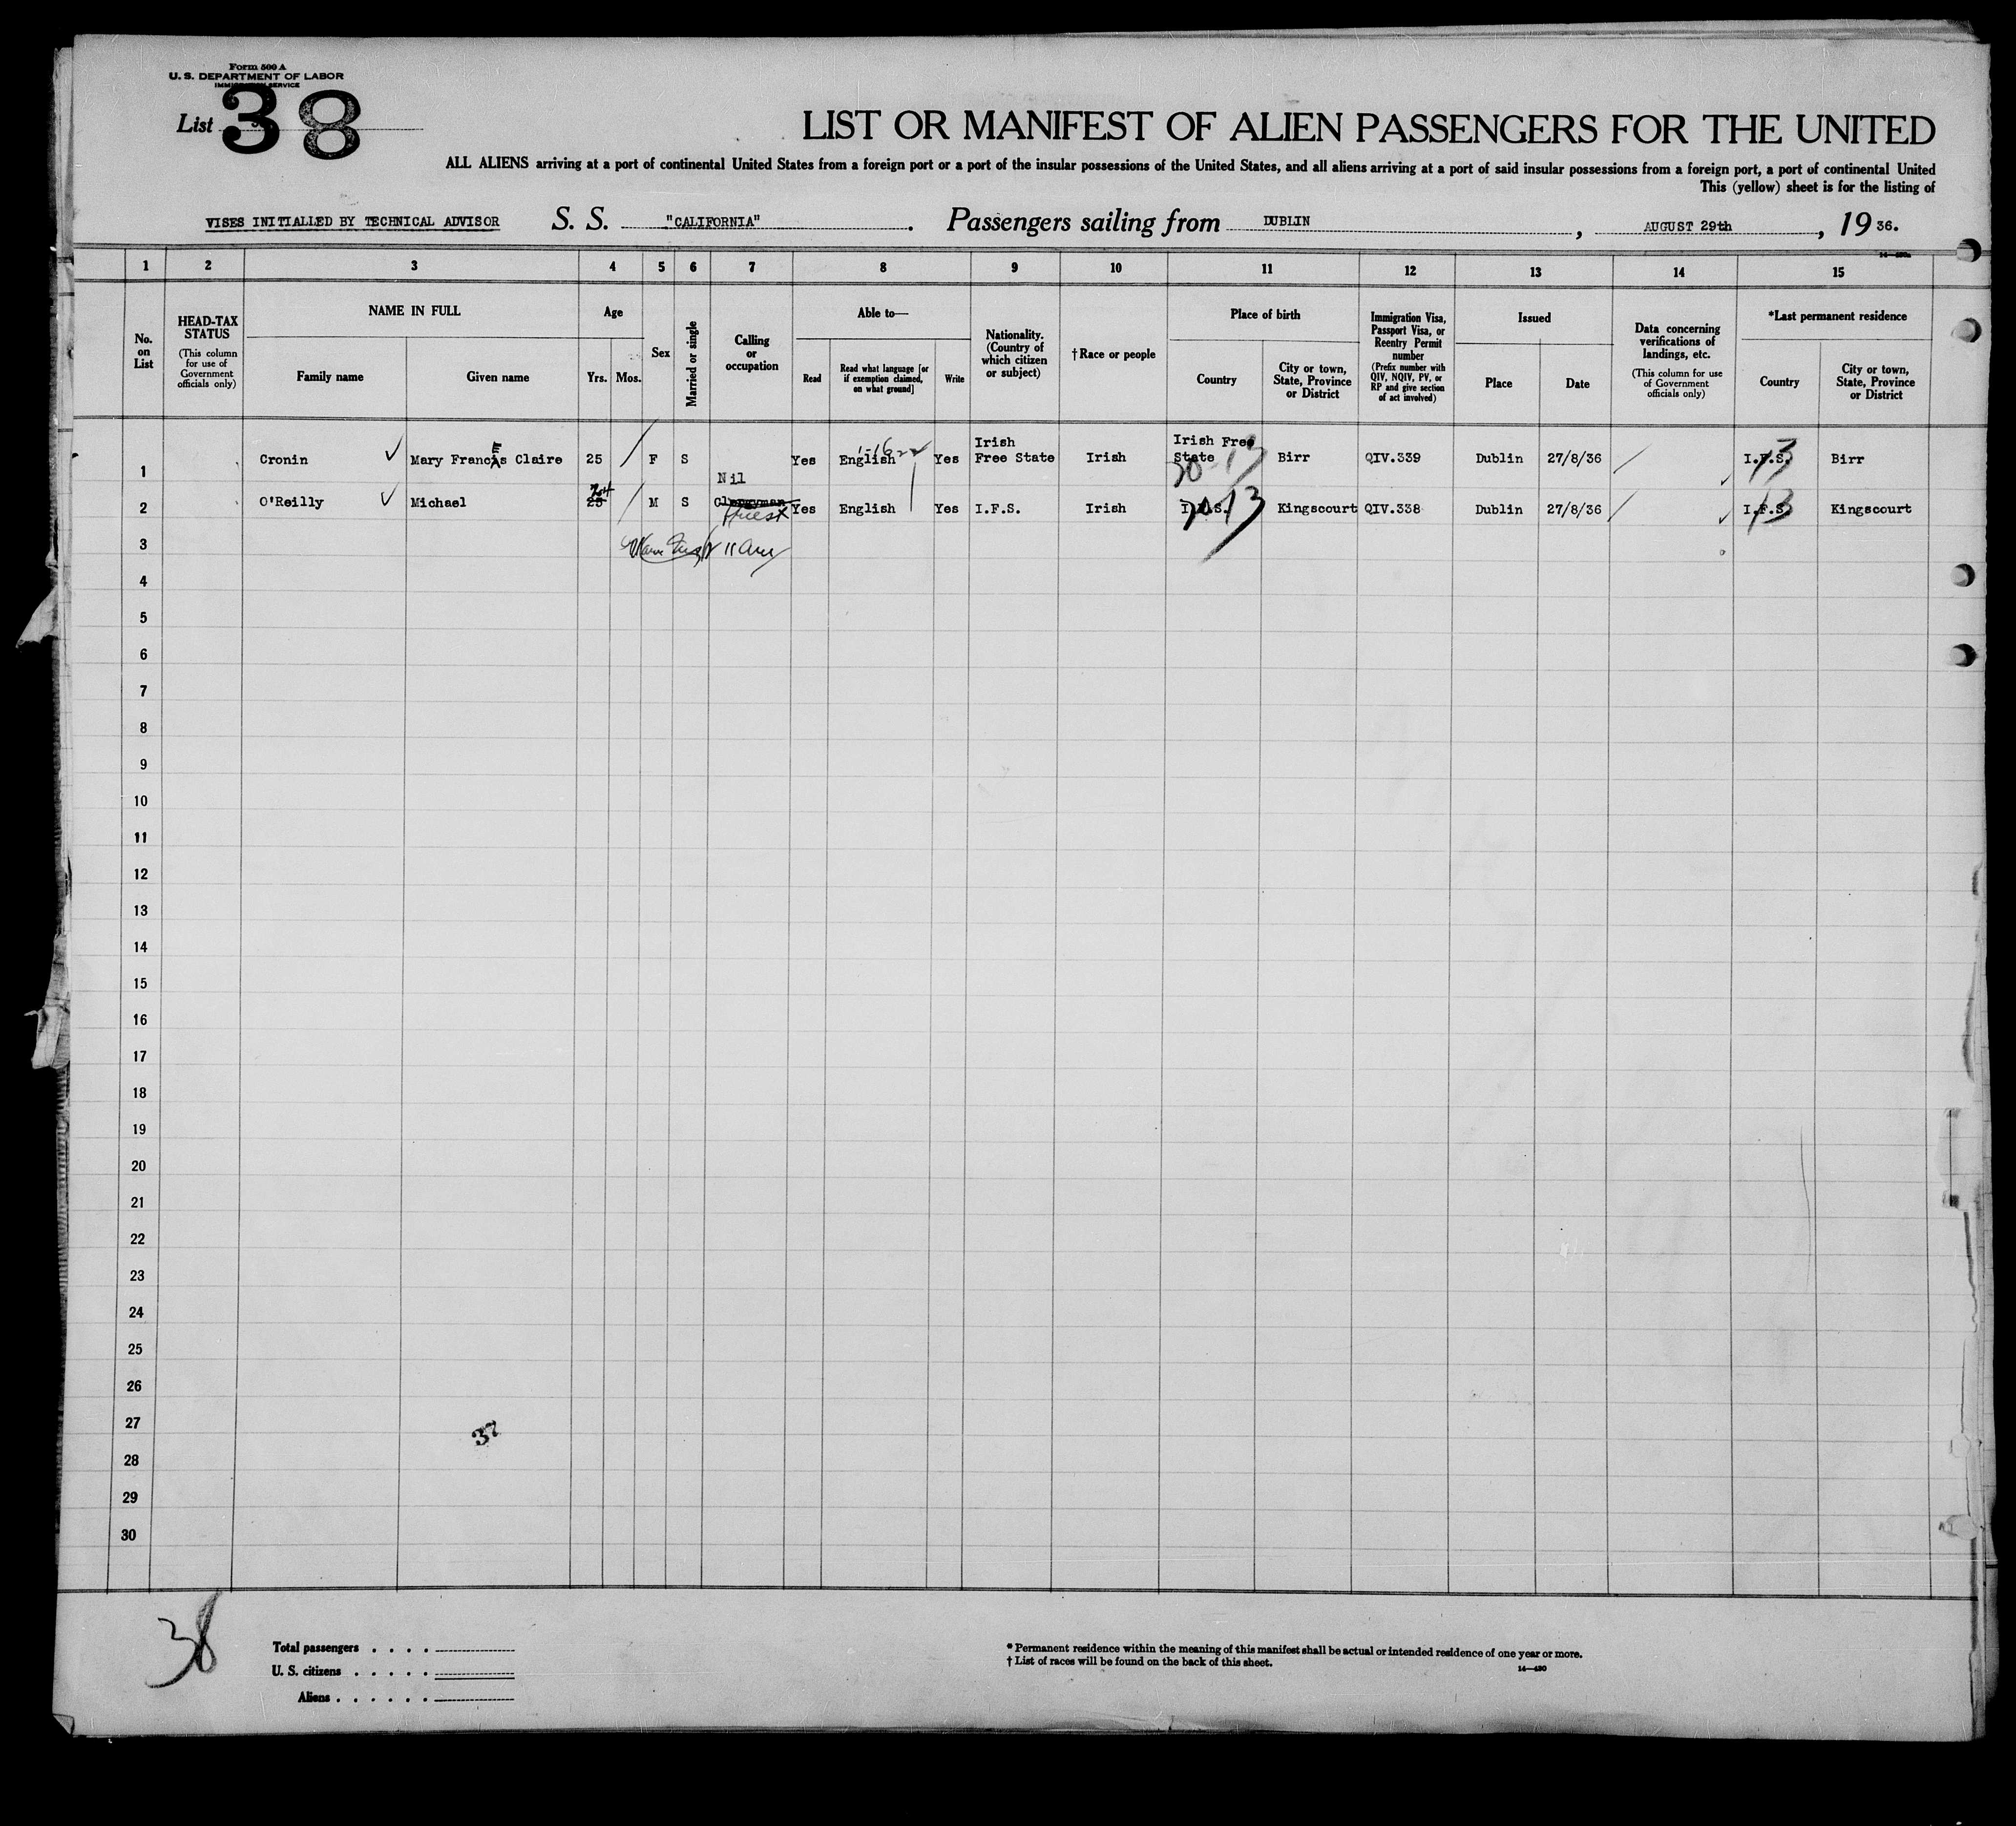 Form 500 A
U. S. DEPARTMENT OF LABOR
IMMIGRATION SERVICE
List 38
LIST OR MANIFEST OF ALIEN PASSENGERS FOR THE UNITED
ALL ALIENS arriving at a port of continental United States from a foreign port or a port of the insular possessions of the United States, and all aliens arriving at a port of said insular possessions from a foreign port, a port of continental United
This (yellow) sheet is for the listing of
VISES INITIALLED BY TECHNICAL ADVISOR S. S. "CALIFORNIA". Passengers sailing from DUBLIN, AUGUST 29th, 19 36.
1 2 3 4 5 6 7 8 9 10 11 12 13 14 15
No. on List
HEAD-TAX STATUS
(This column for use of Government officials only)
NAME IN FULL
Family name
Given name
Age
Yrs. Mos.
Sex
Married or single
Calling or occupation
Able to—
Read
Read what language [or if exemption claimed, on what ground]
Write
Nationality. (Country of which citizen or subject)
†Race or people
Place of birth
Country
City or town, State, Province or District
Immigration Visa, Passport Visa, or Reentry Permit number
(Prefix number with QIV, NQIV, PV, or RP and give section of act involved)
Issued
Place
Date
Data concerning verifications of landings, etc.
(This column for use of Government officials only)
*Last permanent residence
Country
City or town, State, Province or District
1 Cronin Mary Francis Claire 25 F S Nil Yes English Yes Irish Free State Irish Irish Free State Birr QIV.339 Dublin 27/8/36 I.F.S. Birr
E
30-13
13
2 O'Reilly Michael 25 24 M S Clergyman Priest Yes English Yes I.F.S. Irish I.F.S. Kingscourt QIV.338 Dublin 27/8/36 I.F.S. Kingscourt
13
3 11 am
4
5
6
7
8
9
10
11
12
13
14
15
16
17
18
19
20
21
22
23
24
25
26
27
37
28
29
30
38
Total passengers . . . .
U. S. citizens . . . . .
Aliens . . . . . .
* Permanent residence within the meaning of this manifest shall be actual or intended residence of one year or more.
† List of races will be found on the back of this sheet.
14—430